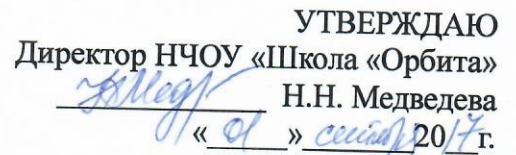 УТВЕРЖДАЮ
Директор НЧОУ «Школа «Орбита»
Н.Н. Медведева
« 01 » сентября 2017 г.